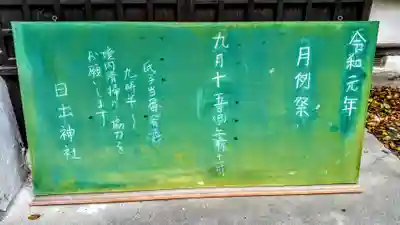 令和元年
月例祭
九月十五日
氏子当番
九時半〜
境内清掃の協力を
お願いします
日出神社